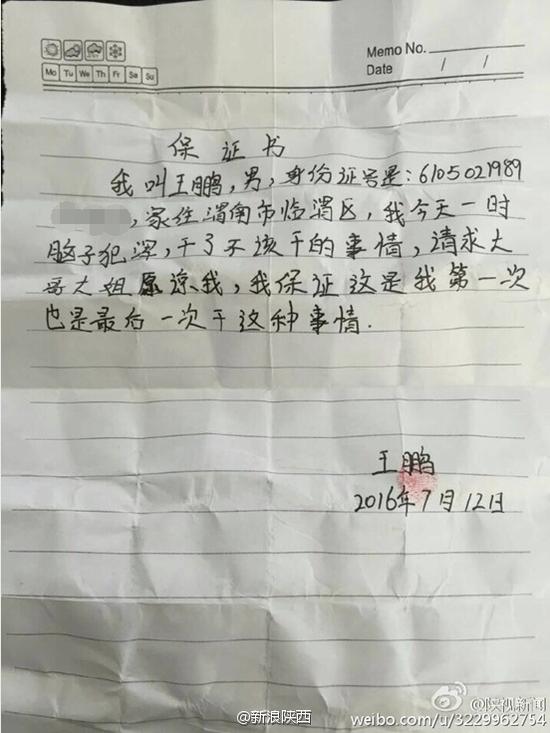 Memo No.
Mo Tu We Th Fr Sa Su
Date / /
保证书
我叫王鹏,男,身份证号是:6105021989
,家住渭南市临渭区,我今天一时
脑子犯浑,干了不该干的事情,请求大
哥大姐原谅我,我保证这是我第一次
也是最后一次干这种事情.
王鹏
2016年7月12日
@新浪陕西
@陕视新闻
weibo.com/u/3229962754